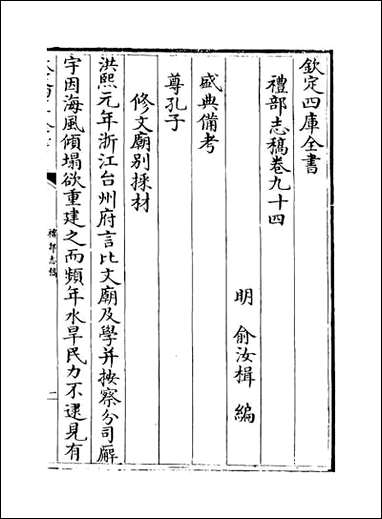 欽定四庫全書
禮部志稿卷九十四
明 俞汝楫 編
盛典備考
尊孔子
修文廟別採材
洪熙元年浙江台州府言比文廟及學并按察分司廨
宇因海風傾塌欲重建之而頻年水旱民力不逮見有
禮部志稿